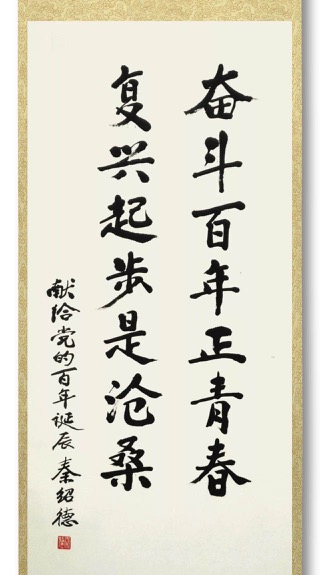 奋斗百年正青春
复兴起步是沧桑
献给党的百年诞辰 秦绍德